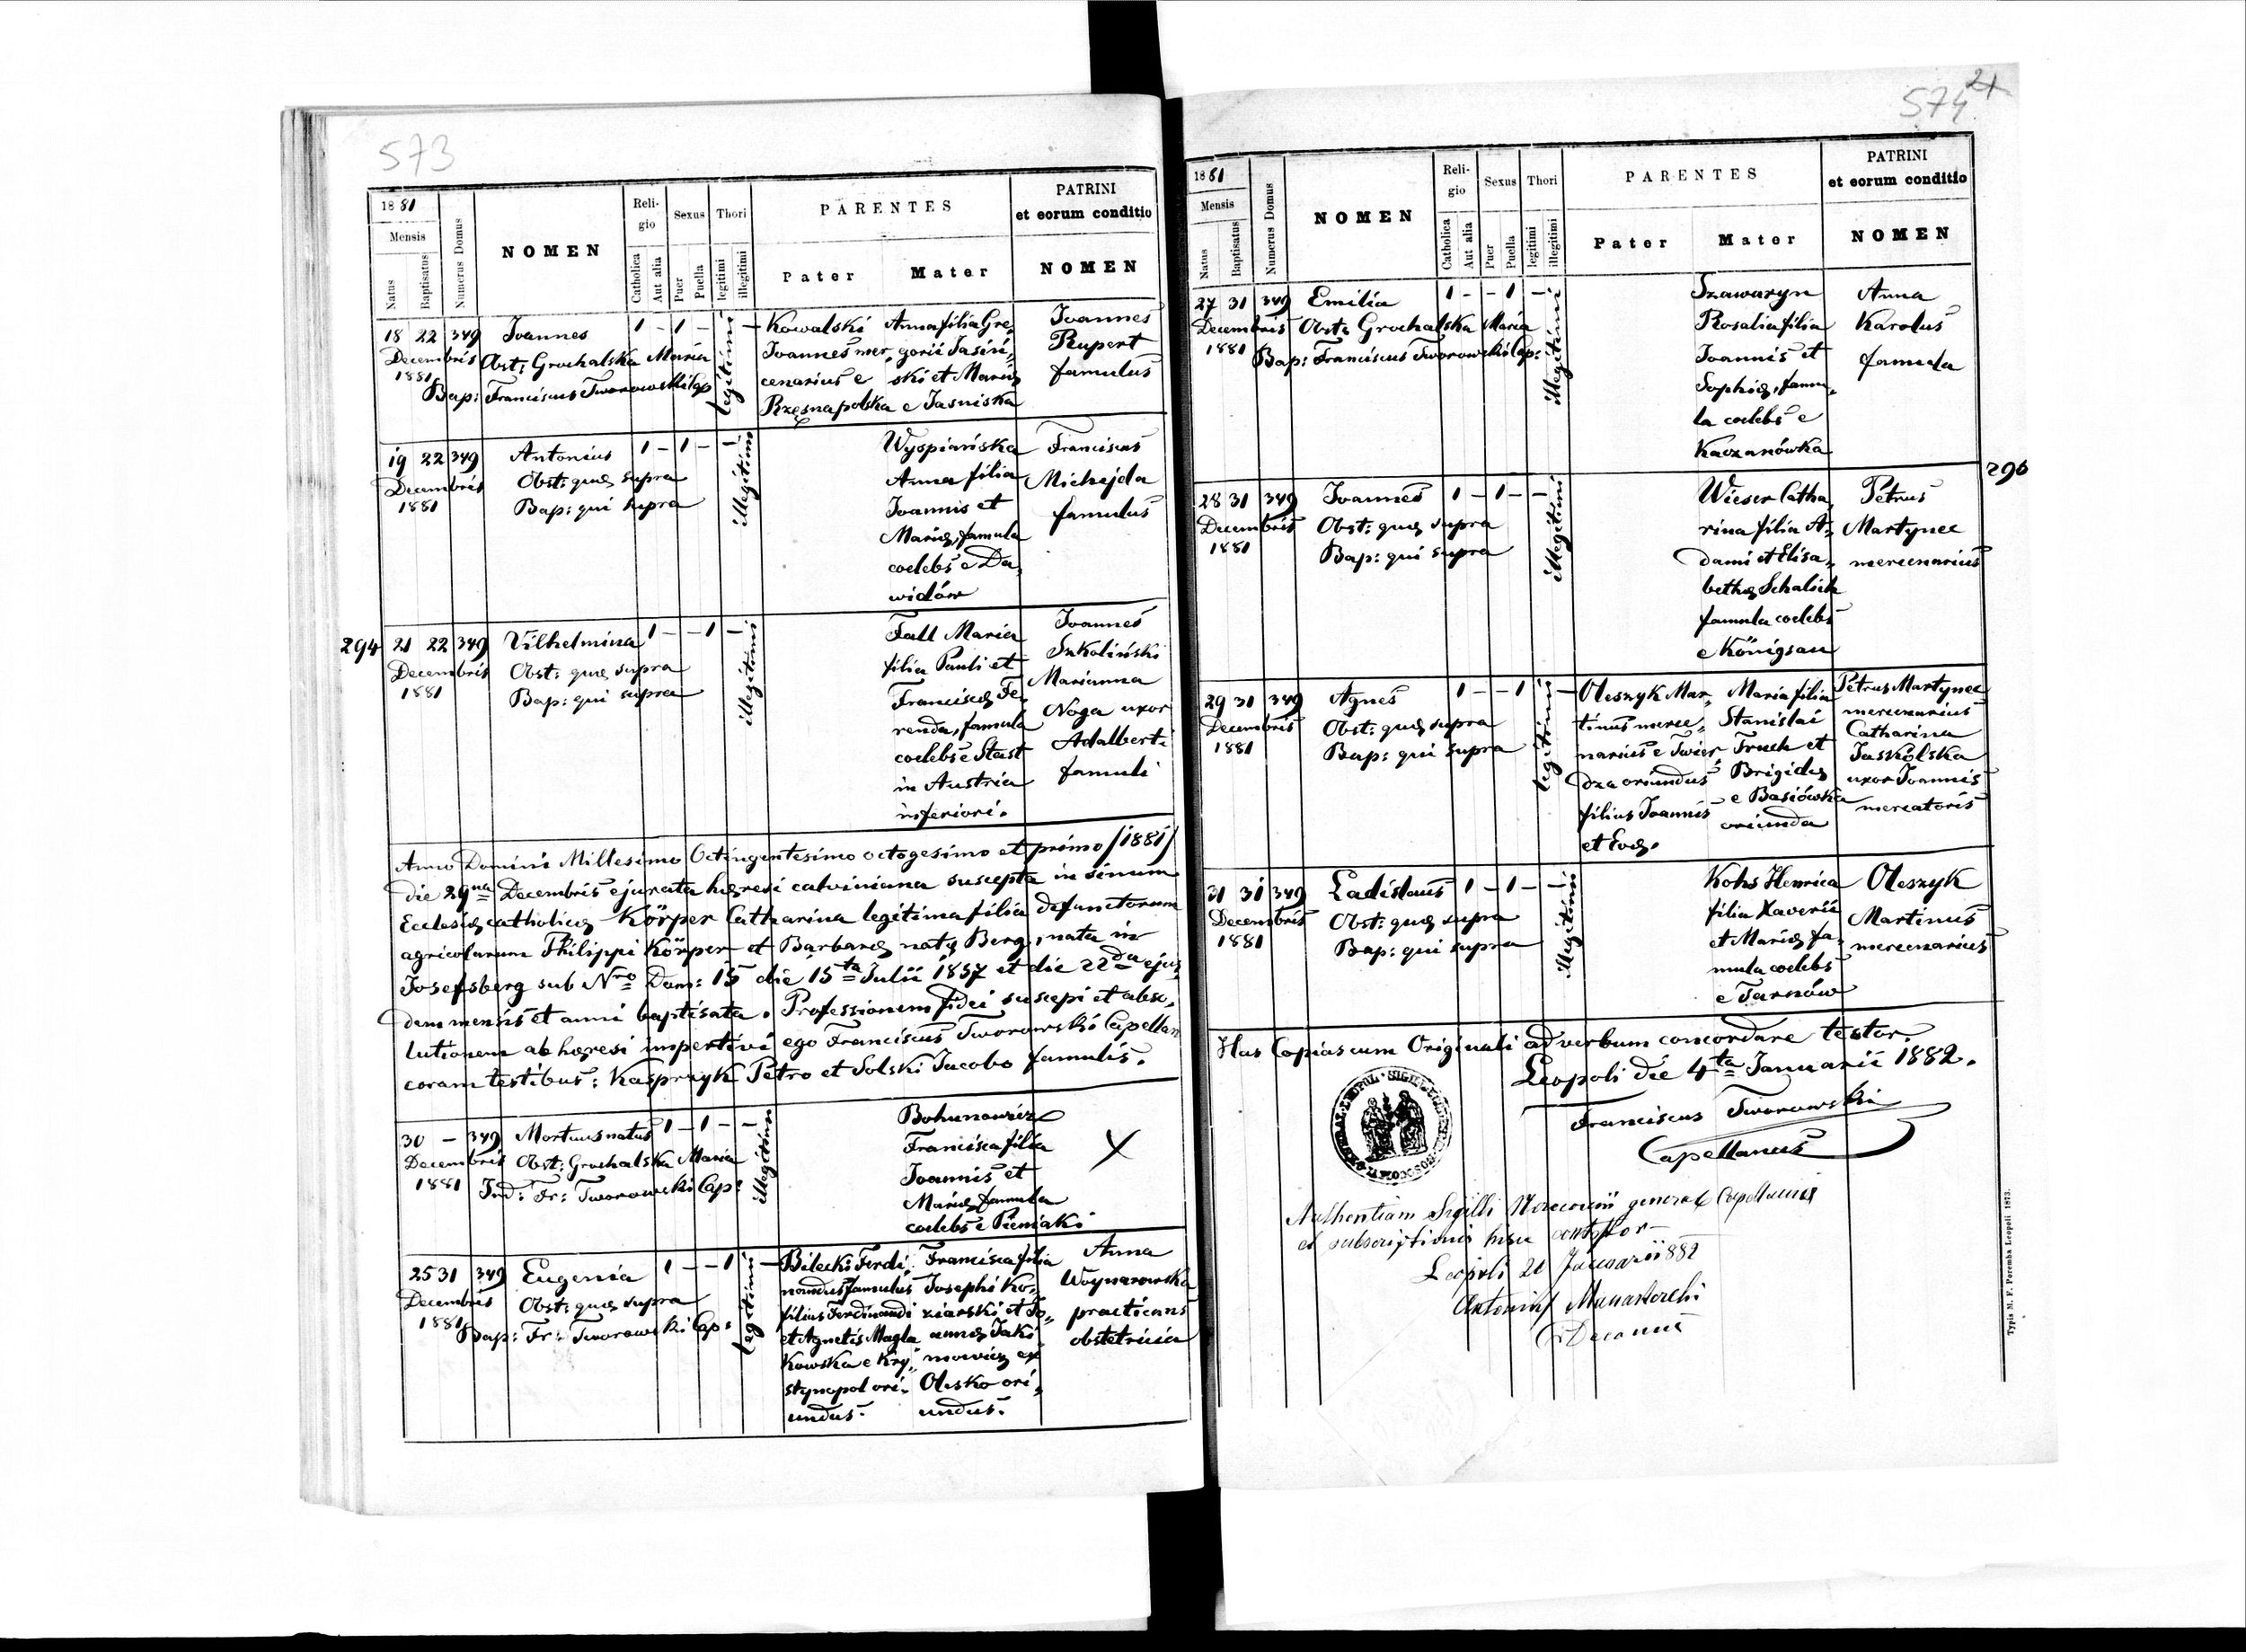 573
1881
Mensis
Natus
Baptisatus
Numerus Domus
NOMEN
Reli-
gio
Catholica
Aut alia
Sexus
Puer
Puella
Thori
legitimi
illegitimi
PARENTES
Pater
Mater
PATRINI
et eorum conditio
NOMEN
18 22 349 Joannes 1 - 1 - 1 -
Decembris Obst: Grochalska Maria
1881
Bap: Franciscus Tworowski Cap
legitimi
Kowalski
Joannes mer„
cenarius e
Rzęsna polska
Anna filia Gre„
gorii Jasiń„
ski et Mariæ
e Jasniska
Joannes
Rupert
famulus
19 22 349 Antonius 1 - 1 - - 1
Decembris Obst: quæ supra
1881 Bap: qui supra
illegitimi
Wyspiańska
Anna filia
Joannis et
Mariæ, famula
coelebs e Da„
widów
Franciscus
Michejda
famulus
294
21 22 349 Vilhelmina 1 - - 1 - 1
Decembris Obst: quæ supra
1881 Bap: qui supra
illegitimi
Fall Maria
filia Pauli et
Franciscæ Fe„
renda, famula
coelebs e Stast
in Austria
inferiori.
Joannes
Sokoliński
Marianna
Noga uxor
Adalberti
famuli
Anno Domini Millesimo Octingentesimo octogesimo et primo /1881/
die 29na Decembris ejurata hæresi calviniana suscepta in sinum
Ecclesiæ catholicæ Körper Catharina legitima filia defunctorum
agricolarum Philippi Körper et Barbaræ natæ Berg, nata in
Josefsberg sub Nro Dom: 15 die 15ta Julii 1857 et die 22da ejus„
dem mensis et anni baptisata. Professionem fidei suscepi et abso„
lutionem ab hæresi impertivi ego Franciscus Tworowski Capellan
coram testibus: Kasprzyk Petro et Solski Jacobo famulis.
30 - 349 Mortuus natus 1 - 1 - - 1
Decembris Obst: Grochalska Maria
1881 Ind: Fr: Tworowski Cap:
illegitimi
Bohunowicz
Francisca filia
Joannis et
Mariæ, famula
coelebs e Pieniaki
X
25 31 349 Eugenia 1 - - 1 1 -
Decembris Obst: quæ supra
1881 Bap: Fr: Tworowski Cap:
legitimi
Bilecki Ferdi„
nandus famulus
filius Ferdinandi
et Agnetis Magla
kowska e Kry„
stynopol ori„
undus.
Francisca filia
Josephi Ko„
ziarski et Jo„
annæ Jaki
mowicz ex
Olesko ori„
undus.
Anna
Woynarowska
practicans
obstetricia
574
21
1881
Mensis
Natus
Baptisatus
Numerus Domus
NOMEN
Reli-
gio
Catholica
Aut alia
Sexus
Puer
Puella
Thori
legitimi
illegitimi
PARENTES
Pater
Mater
PATRINI
et eorum conditio
NOMEN
27 31 349 Emilia 1 - - 1 - 1
Decembris Obst: Grochalska Maria
1881 Bap: Franciscus Tworowski Cap:
illegitimi
Szawaryn
Rosalia filia
Joannis et
Sophiæ, famu„
la coelebs e
Kaczanówka
Anna
Karolus
famula
296
28 31 349 Joannes 1 - 1 - - 1
Decembris Obst: quæ supra
1881 Bap: qui supra
illegitimi
Wieser Catha„
rina filia A„
dami et Elisa„
bethæ Schalich
famula coelebs
e Königsau
Petrus
Martynec
mercenarius
29 31 349 Agnes 1 - - 1 1 -
Decembris Obst: quæ supra
1881 Bap: qui supra
legitimi
Oleszyk Mar„
tinus merce„
narius e Twier„
dza oriundus
filius Joannis
et Evæ.
Maria filia
Stanislai
Truch et
Brigidæ
e Basiówka
oriunda
Petrus Martynec
mercenarius
Catharina
Jaskólska
uxor Joannis
mercatoris
31 31 349 Ladislaus 1 - 1 - - 1
Decembris Obst: quæ supra
1881 Bap: qui supra
illegitimi
Kohs Henrica
filia Xaverii
et Mariæ fa„
mula coelebs
e Tarnów
Oleszyk
Martinus
mercenarius
Has Copias cum Originali ad verbum concordare testor.
Leopoli die 4ta Januarii 1882.
Franciscus Tworowski
Capellanus
Authentiam Sigilli Nosocomii general Capellani
et subscriptionis hisce contestor
Leopoli 21 Januarii 882
Antonius
Decanus
Typis M. F. Poremba Leopoli 1873.